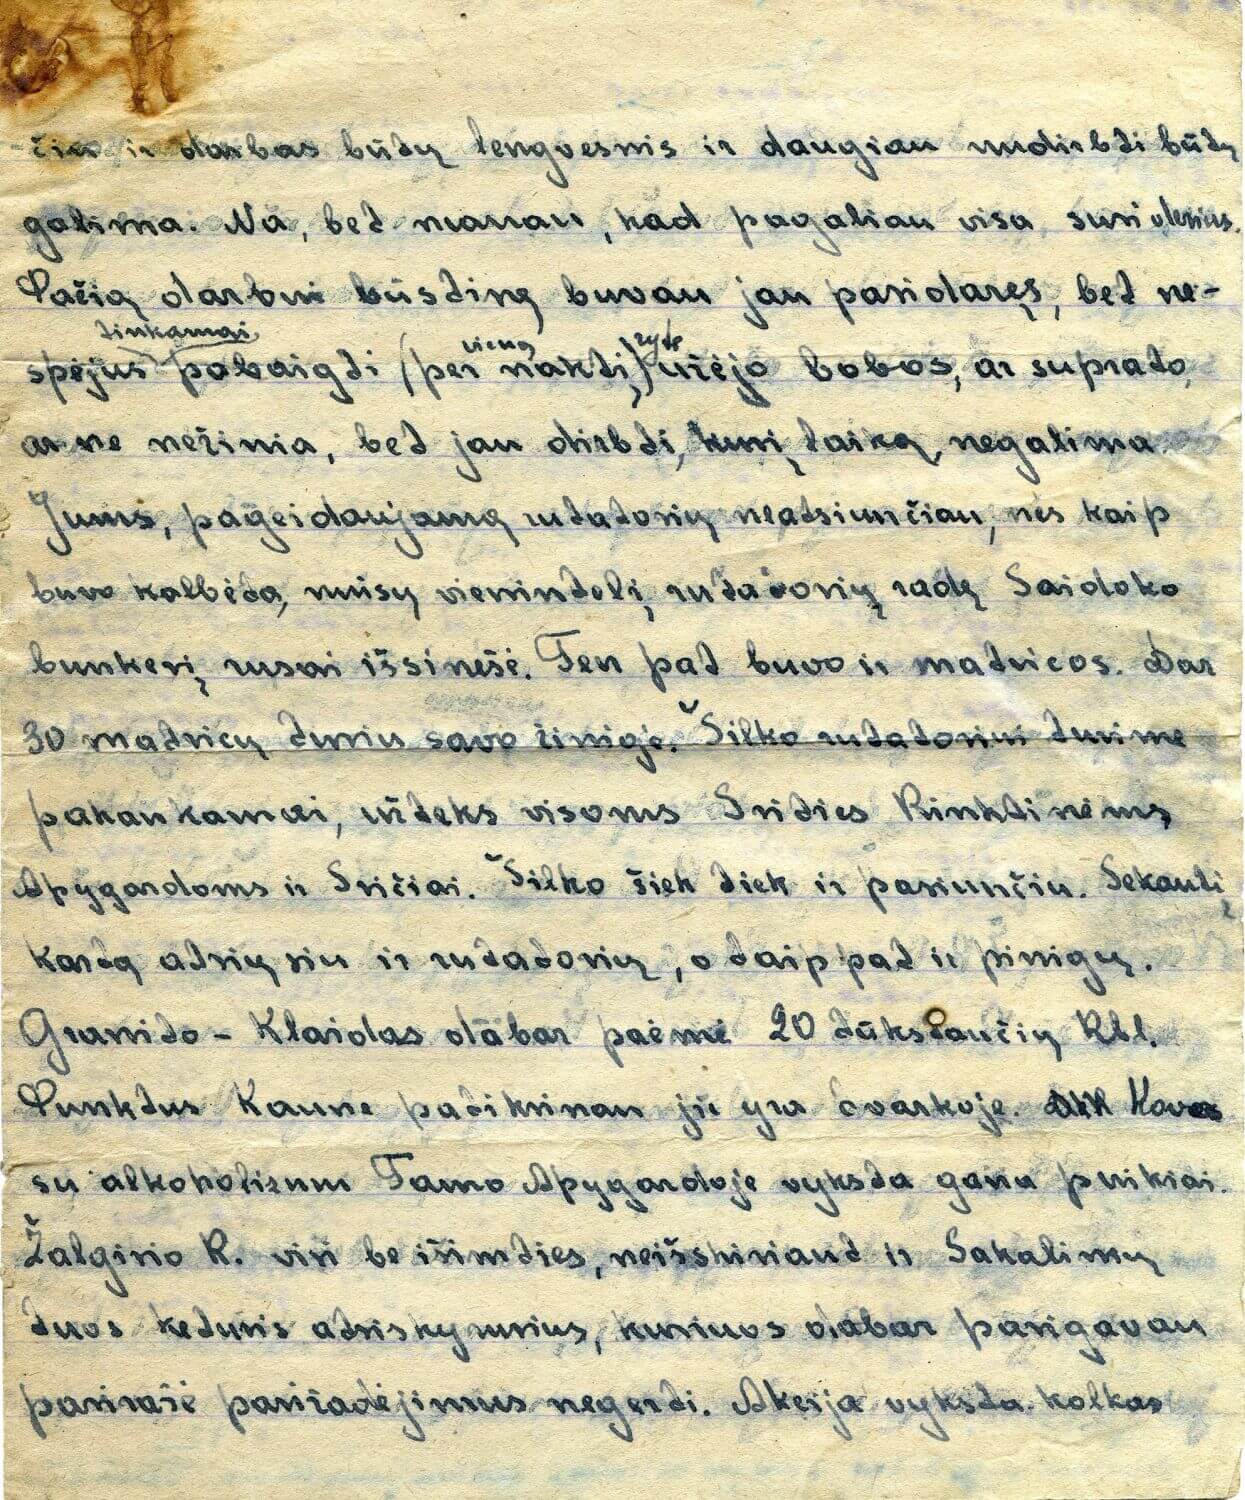 čiu ir darbas būtų lengvesnis ir daugiau nudirbti būtų
galima. Na, bet manau, kad pagaliau visa
Pačią darbui būstinę buvau jau pasidaręs, bet ne-
tinkamai vieną ryte
spėjus pabaigti (per naktį) užėjo bobos, ar suprato,
ar ne nežinia, bet jau dirbti, kurį laiką, negalima.
Jums, pageidaujamą rotatorių neatsiunčiau, nes kaip
buvo kalbėta, mūsų vienintelį, rotatorių radę Saidoko
bunkerį rusai išsinešė. Ten pat buvo ir matricos. Dar
30 matricų turiu savo žinioje. Šilko rotatoriui turime
pakankamai, užteks visoms Srities Rinktinėms,
Apygardoms ir Sričiai. Šilko šiek tiek ir pasiunčiu. Sekantį
kartą atsiųsiu ir rotatorių, o taip pat ir pinigų.
Granito - Klaidas dabar paėmė 20 tūkstančių Rbl.
Punktus Kaune patikrinau jie yra tvarkoje. Kovos
su alkoholizmu Tamo Apygardoje vyksta gana puikiai.
Žalgirio R. visi be išimties, neišskiriant ir Sakalinių
tuos keturis atriskyrurius, kuriuos dabar pasigavau
pasirašė pasižadėjimus negerti. Akcija vyksta kolkas